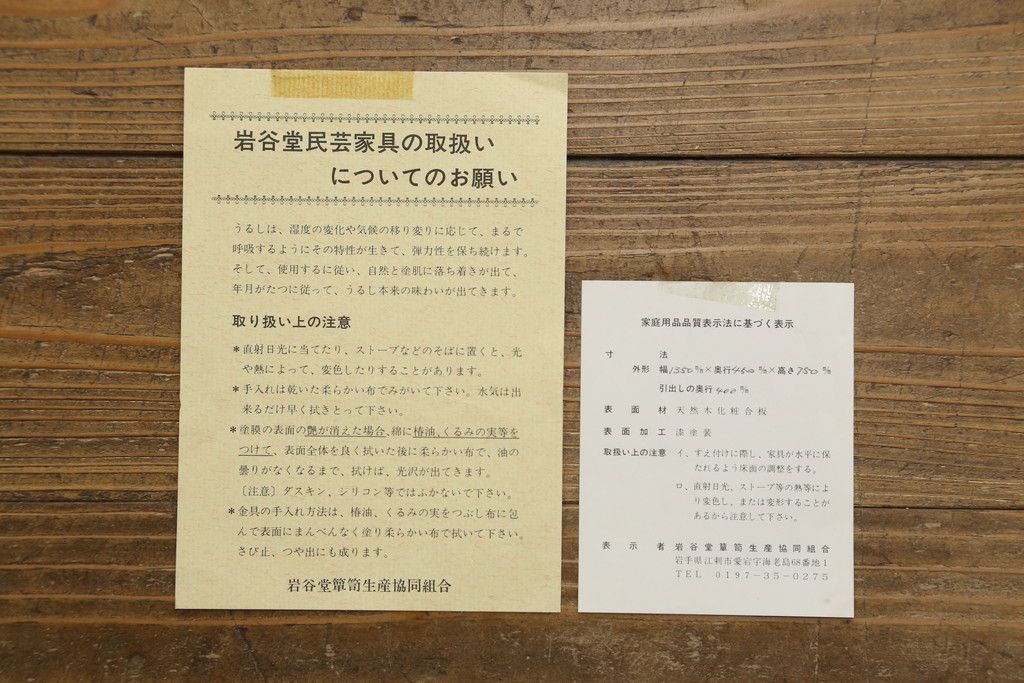 岩谷堂民芸家具の取扱い
についてのお願い
うるしは、湿度の変化や気候の移り変りに応じて、まるで
呼吸するようにその特性が生きて、弾力性を保ち続けます。
そして、使用するに従い、自然と塗肌に落ち着きが出て、
年月がたつに従って、うるし本来の味わいが出てきます。
取り扱い上の注意
*直射日光に当てたり、ストーブなどのそばに置くと、光
や熱によって、変色したりすることがあります。
*手入れは乾いた柔らかい布でみがいて下さい。水気は出
来るだけ早く拭きとって下さい。
*塗膜の表面の艶が消えた場合、綿に椿油、くるみの実等を
つけて、表面全体を良く拭いた後に柔らかい布で、油の
曇りがなくなるまで、拭けば、光沢が出てきます。
〔注意〕ダスキン、シリコン等ではふかないで下さい。
*金具の手入れ方法は、椿油、くるみの実をつぶし布に包
んで表面にまんべんなく塗り柔らかい布で拭いて下さい。
さび止、つや出にも成ります。
岩谷堂簞笥生産協同組合
家庭用品品質表示法に基づく表示
寸法
外形 幅1350㎜×奥行460㎜×高さ750㎜
引出しの奥行400㎜
表面材 天然木化粧合板
表面加工 漆塗装
取扱い上の注意 イ、すえ付けに際し、家具が水平に保
たれるよう床面の調整をする。
ロ、直射日光、ストーブ等の熱等によ
り変色し、または変形することが
あるから注意して下さい。
表示者 岩谷堂簞笥生産協同組合
岩手県江刺市愛宕字海老島68番地1
TEL 0197-35-0275